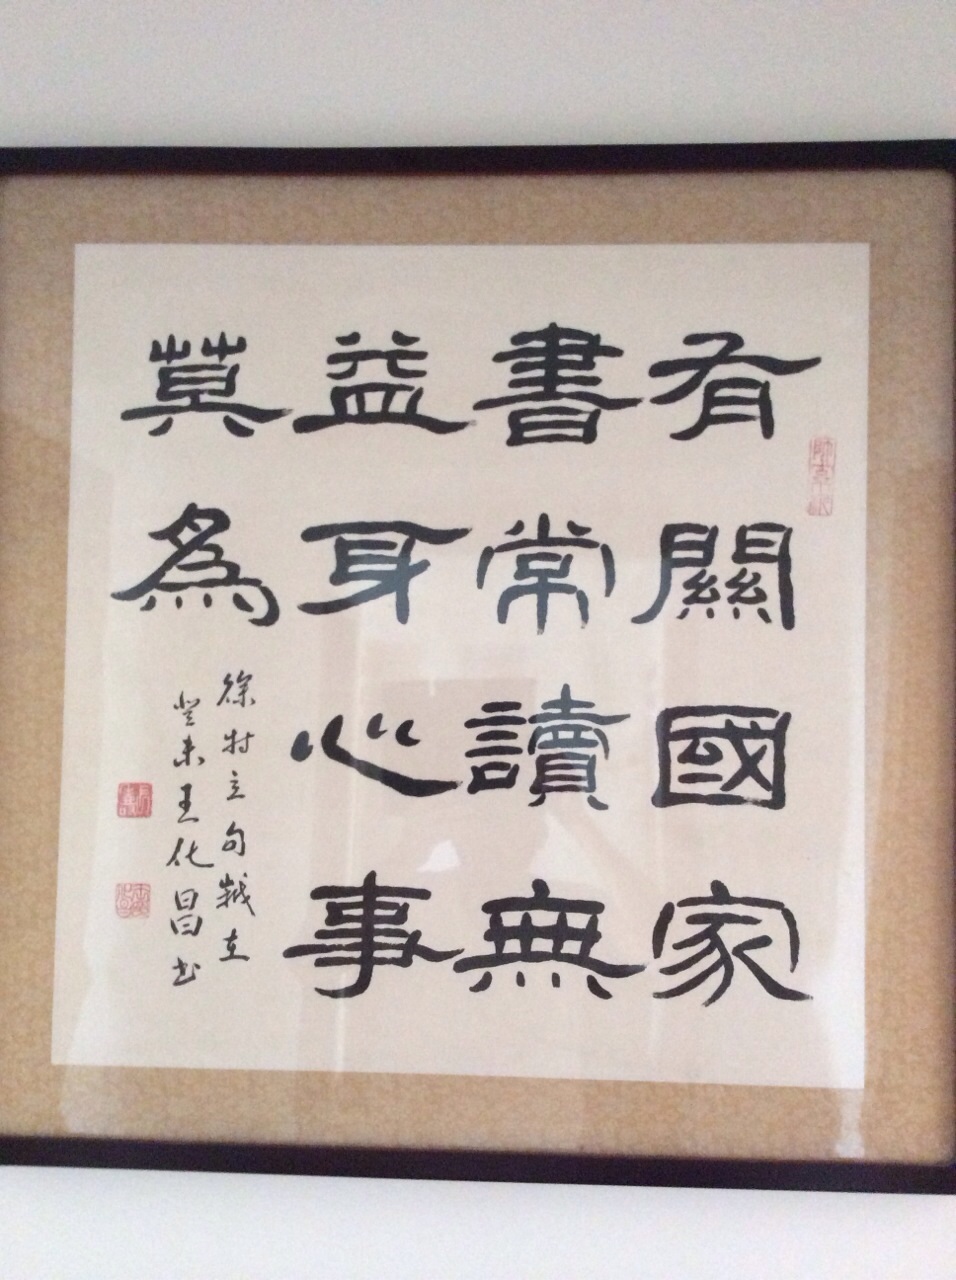 有關國家
書常讀無
益身心事
莫為
徐特立句
癸未王化昌书